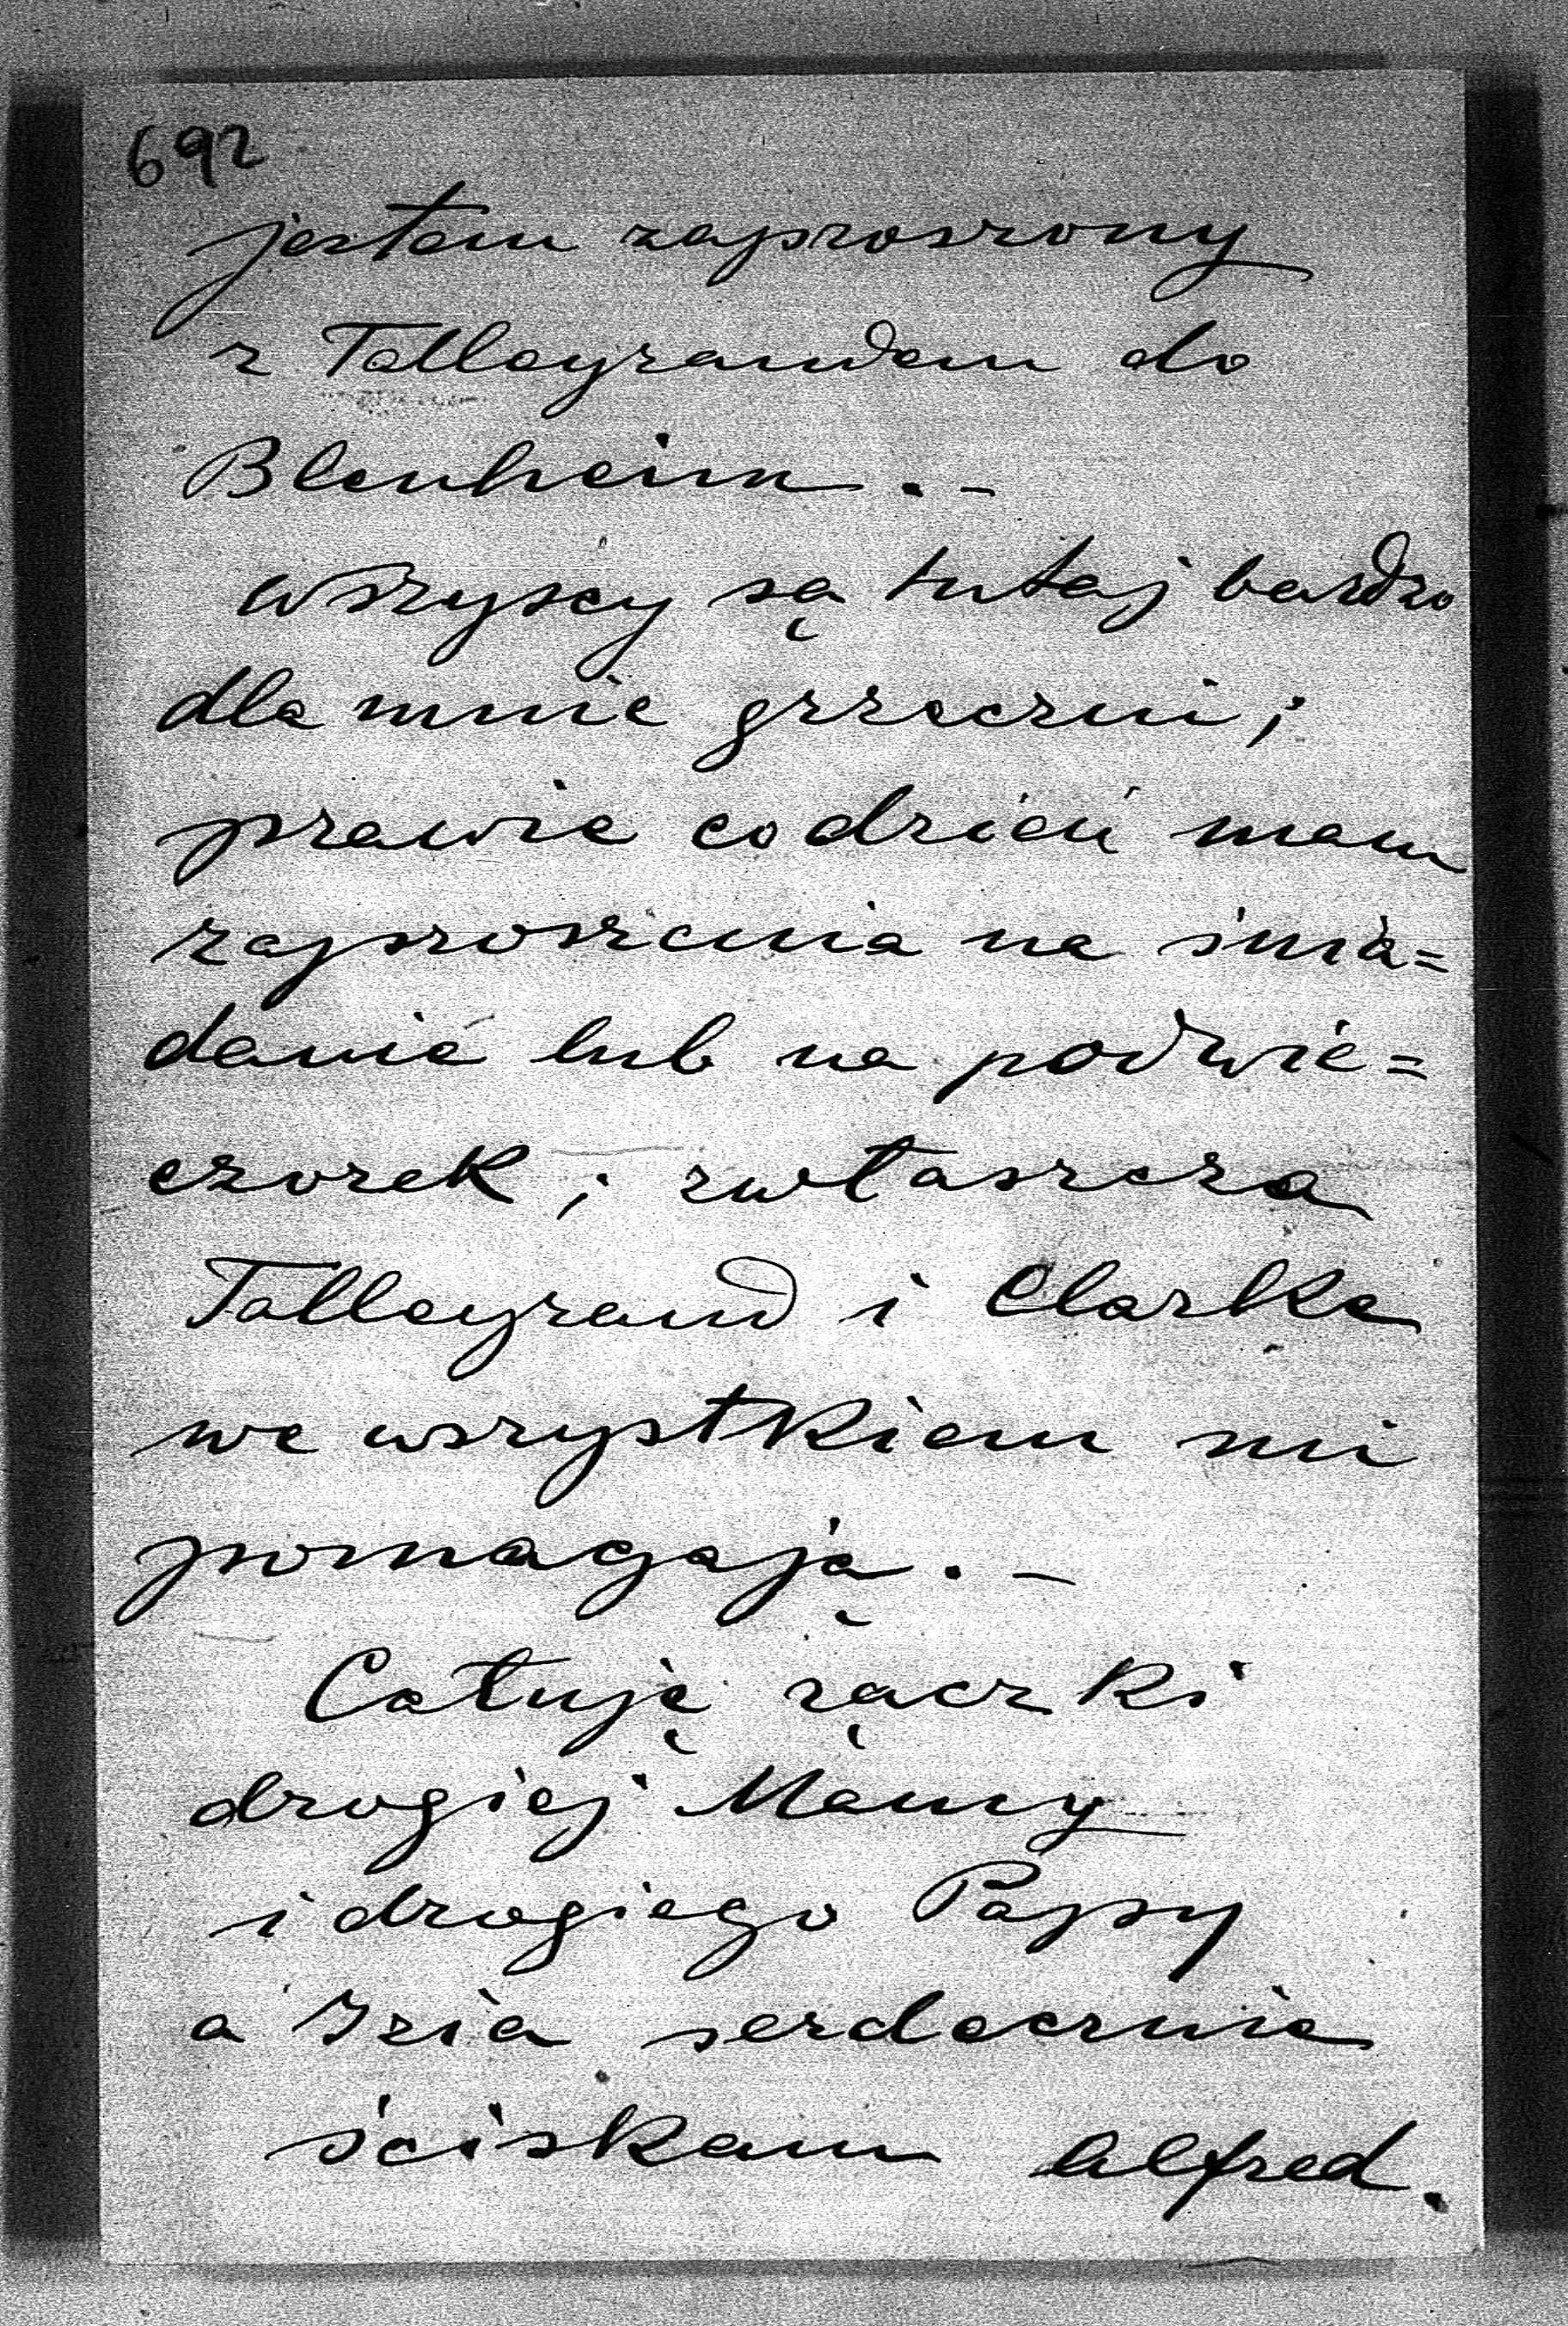 692
jestem zaproszony
z Talleyrandem do
Blenheim. -
wszyscy są tutaj bardzo
dla mnie grzeczni;
prawie codzień mam
zaproszenia na śnia=
danie lub na podwie=
czorek; zwłaszcza
Talleyrand i Clarke
we wszystkiem mi
pomagają. -
Całuję rączki
drogiej Mamy
i drogiego Papy
a Izia serdecznie
ściskam Alfred.